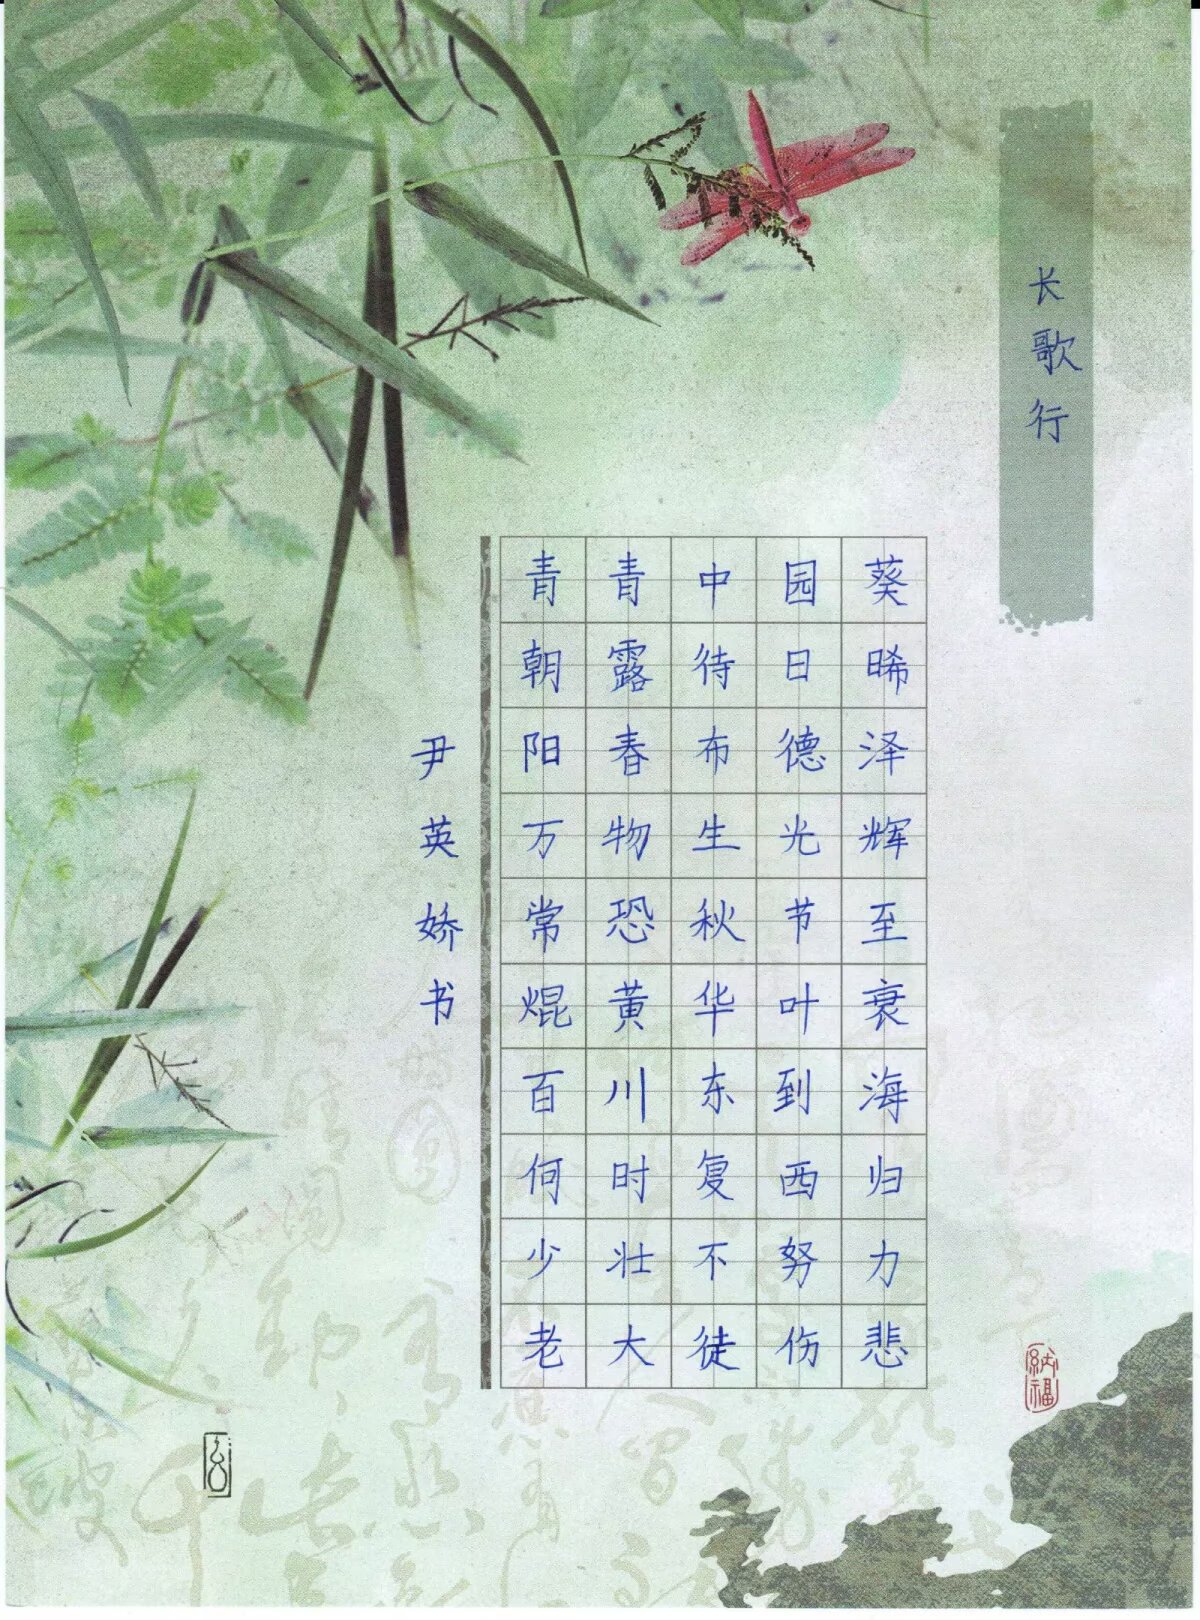 长歌行
青青中园葵
朝露待日晞
阳春布德泽
万物生光辉
常恐秋节至
焜黄华叶衰
百川东到海
何时复西归
少壮不努力
老大徒伤悲
尹英娇书